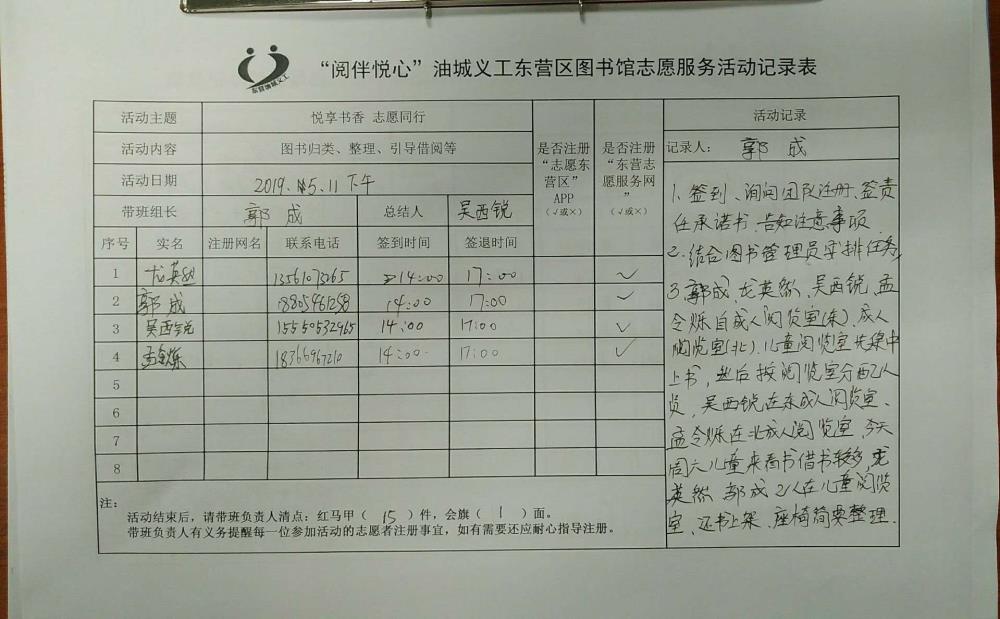 东营油城义工
“阅伴悦心”油城义工东营区图书馆志愿服务活动记录表
活动主题 悦享书香 志愿同行
活动内容 图书归类、整理、引导借阅等
活动日期 2019. 5.11 下午
带班组长 郭成 总结人 吴西锐
是否注册“志愿东营区”APP（√或×）
是否注册“东营志愿服务网”（√或×）
序号 实名 注册网名 联系电话 签到时间 签退时间
1 龙英然 14:00 17:00 ✓
2 郭成 18805461258 14:00 17:00 ✓
3 吴西锐 15550532965 14:00 17:00 ✓
4 孟令烁 18366967210 14:00 17:00 ✓
5
6
7
8
注：
活动结束后，请带班负责人清点：红马甲（ 15 ）件，会旗（ 1 ）面。
带班负责人有义务提醒每一位参加活动的志愿者注册事宜，如有需要还应耐心指导注册。
活动记录
记录人： 郭成
1、签到、询问团队注册、签责
任承诺书、告知注意事项
2、结合图书管理员安排任务
3、郭成、龙英然、吴西锐、孟
令烁自成人阅览室(东)、成人
阅览室(北)、儿童阅览室先集中
上书，然后按阅览室分配人
员，吴西锐在东成人阅览室、
孟令烁在北成人阅览室，今天
周六儿童来看书借书较多，龙
英然、郭成2人在儿童阅览
室、还书上架、座椅简要整理.